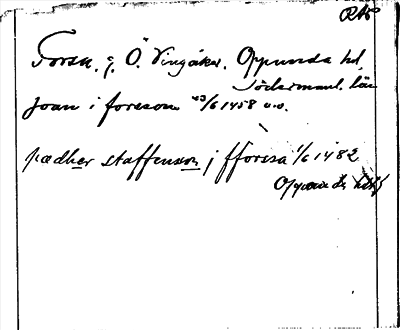 RAP
Forsa, g. Ö. Vingåker. Oppunda hd,
Södermanl. län
Joan i foressom 23/6 1458 o.o.
pædher staffensson j fforssa 1/6 1482
Oppunda hdbf